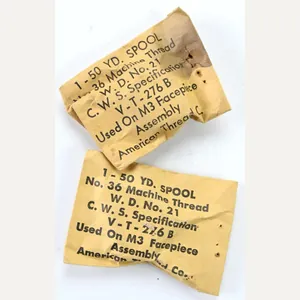 1 - 50 YD. SPOOL
No. 36 Machine Thread
W. D. No. 21
C. W. S. Specification
V - T - 276 B
Used On M3 Facepiece
Assembly
American Thread C
1 - 50 YD. SPOOL
No. 36 Machine Thread
W. D. No. 21
C. W. S. Specification
V - T - 276 B
Used On M3 Facepiece
Assembly
American Thread Co.